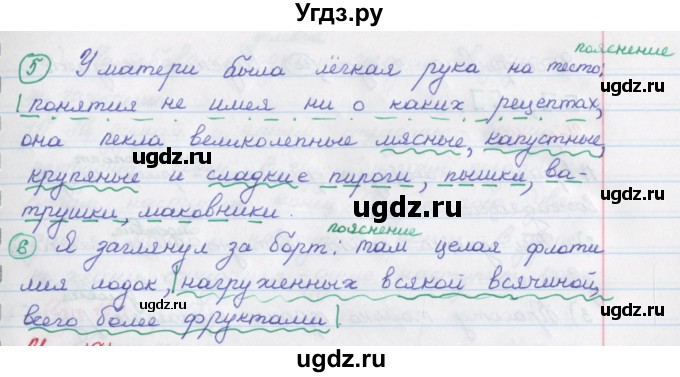 Угдз.ру
пояснение
5 У матери была лёгкая рука на тесто:
понятия не имея ни о каких рецептах,
она пекла великолепные мясные, капустные,
крупяные и сладкие пироги, пышки, ва-
трушки, маковники.
пояснение
6 Я заглянул за борт: там целая флоти
лия лодок, нагруженных всякой всячиной,
всего более фруктами
ugdz.ru
ugdz.ru
ugdz.ru
ugdz.ru
ugdz.ru
ugdz.ru
ugdz.ru
ugdz.ru
ugdz.ru